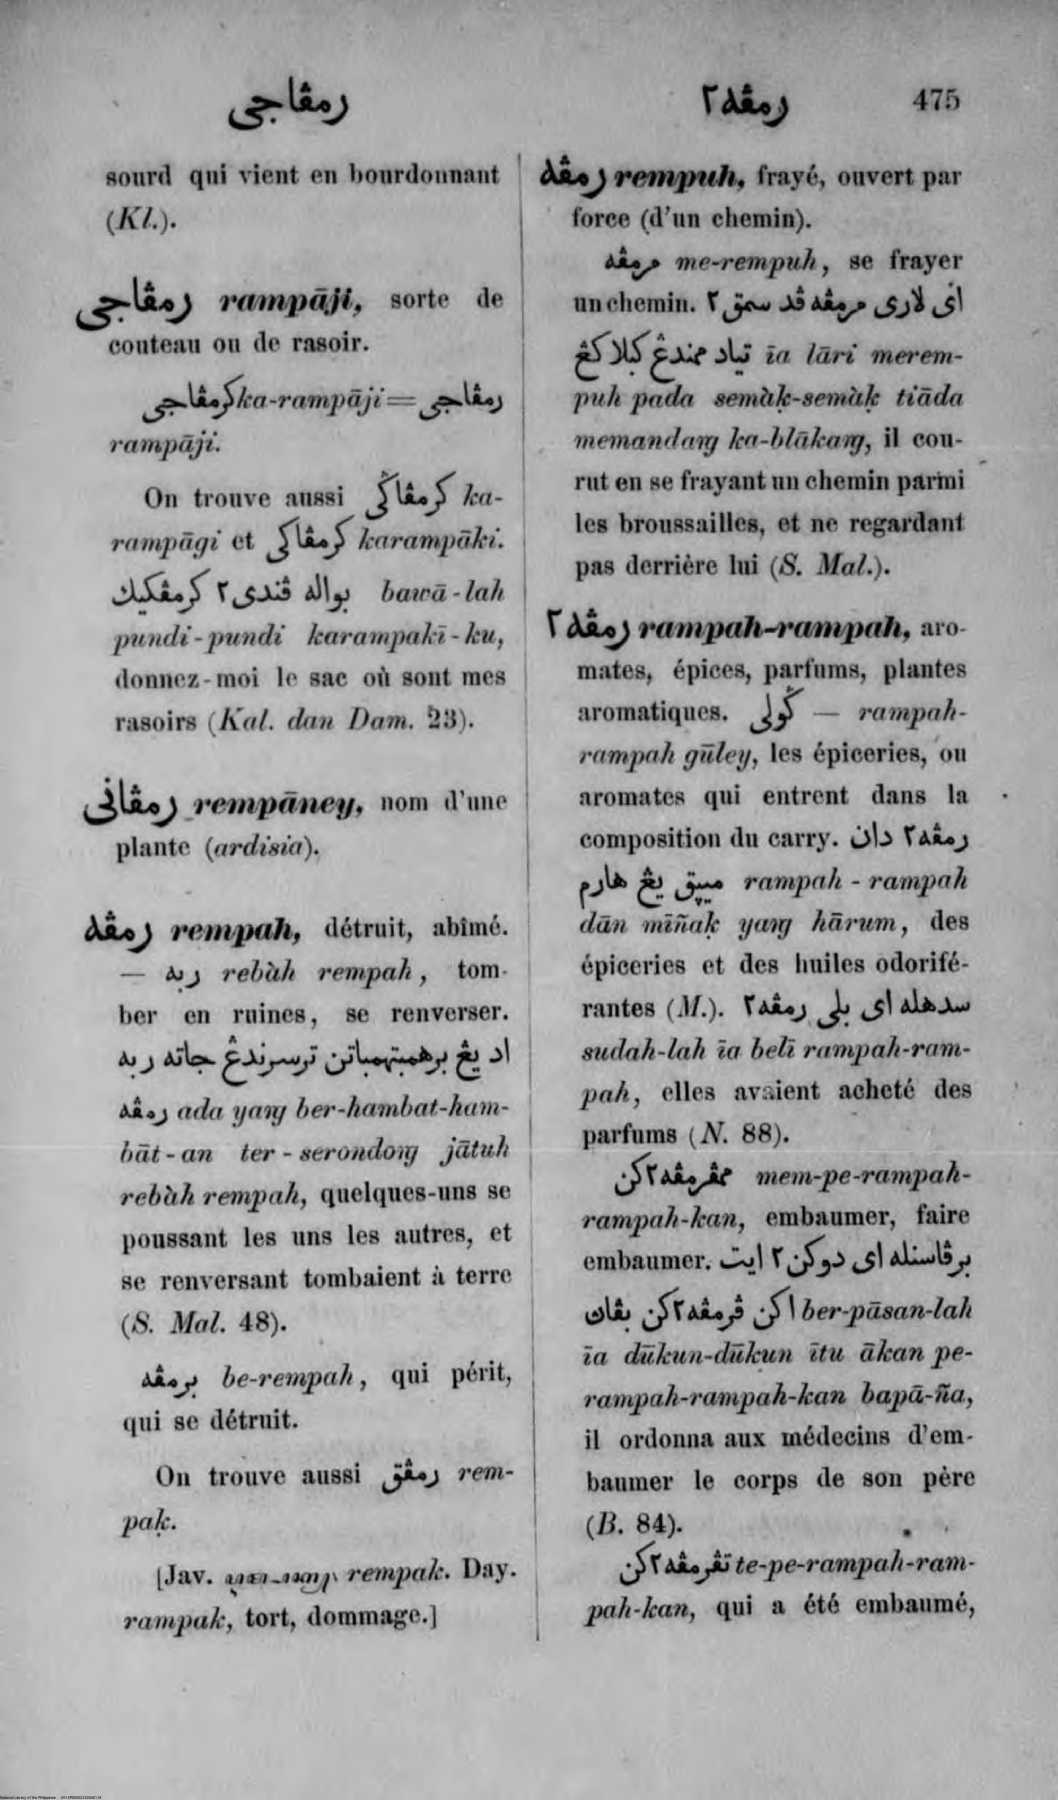 رمڤاجي
رمڤه٢ 475
sourd qui vient en bourdonnant
(Kl.).
رمڤاجي rampāji, sorte de
couteau ou de rasoir.
كرمڤاجي ka-rampāji = رمڤاجي
rampāji.
On trouve aussi كرمڤاݢي ka-
rampāgi et كرمڤاكي karampāki.
بواله ڤندي٢ كرمڤكيك bawā-lah
pundi-pundi karampakī-ku,
donnez-moi le sac où sont mes
rasoirs (Kal. dan Dam. 23).
رمڤاني rempāney, nom d'une
plante (ardisia).
رمڤه rempah, détruit, abîmé.
— ربه rebàh rempah, tom-
ber en ruines, se renverser.
اد يڠ برهمبتهمباتن ترسرندڠ جاته ربه
رمڤه ada yaṅg ber-hambat-ham-
bāt-an ter-serondoṅg jātuh
rebàh rempah, quelques-uns se
poussant les uns les autres, et
se renversant tombaient à terre
(S. Mal. 48).
برمڤه be-rempah, qui périt,
qui se détruit.
On trouve aussi رمڤق rem-
paḳ.
[Jav. rempak. Day.
rampak, tort, dommage.]
رمڤه rempuh, frayé, ouvert par
force (d'un chemin).
مرمڤه me-rempuh, se frayer
un chemin. اي لاري مرمڤه ڤد سمق٢
تياد ممندڠ كبلاكڠ īa lāri merem-
puh pada semàḳ-semàḳ tiāda
memandaṅg ka-blākaṅg, il cou-
rut en se frayant un chemin parmi
les broussailles, et ne regardant
pas derrière lui (S. Mal.).
رمڤه٢ rampah-rampah, aro-
mates, épices, parfums, plantes
aromatiques. ݢولي — rampah-
rampah gūley, les épiceries, ou
aromates qui entrent dans la
composition du carry. رمڤه٢ دان
ميڽق يڠ هارم rampah-rampah
dān mīñaḳ yaṅg hārum, des
épiceries et des huiles odorifé-
rantes (M.). سدهله اي بلي رمڤه٢
sudah-lah īa belī rampah-ram-
pah, elles avaient acheté des
parfums (N. 88).
ممڤرمڤه٢كن mem-pe-rampah-
rampah-kan, embaumer, faire
embaumer. برڤاسنله اي دوكن٢ ايت
اكن ڤرمڤه٢كن بڤاڽ ber-pāsan-lah
īa dūkun-dūkun ītu ākan pe-
rampah-rampah-kan bapā-ña,
il ordonna aux médecins d'em-
baumer le corps de son père
(B. 84).
تڤرمڤه٢كن te-pe-rampah-ram-
pah-kan, qui a été embaumé,